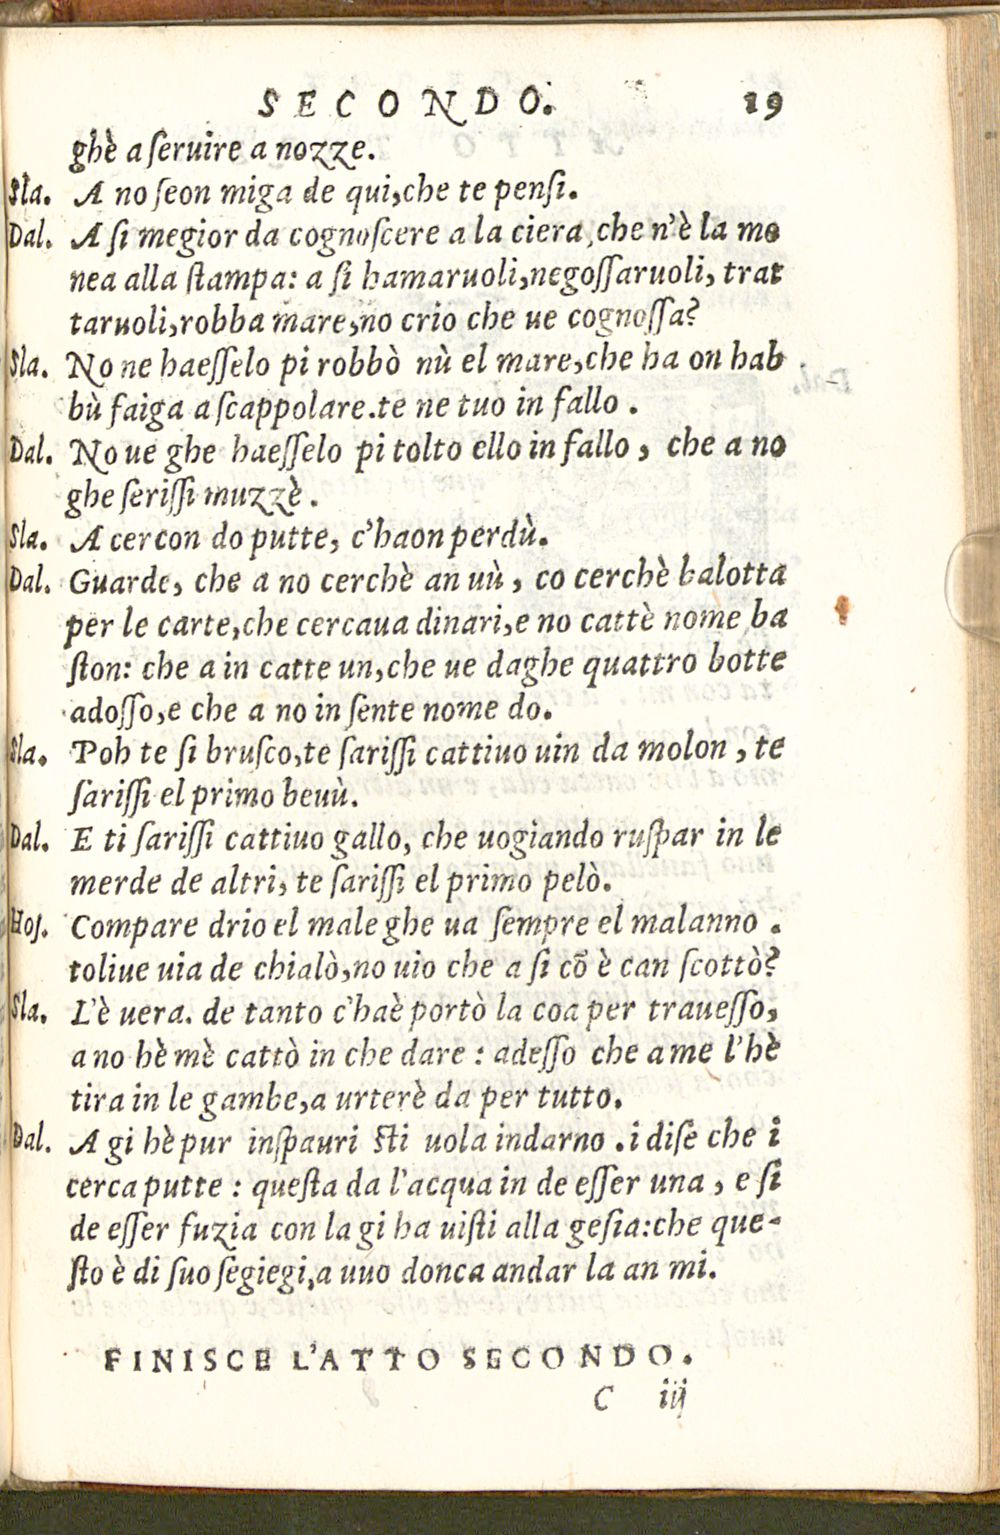 SECONDO. 19
ghè a ſeruire a nozze.
Sla. A no ſeon miga de qui, che te penſi.
Dal. A ſi megior da cognoſcere a la ciera, che n'è la mo
nea alla ſtampa: a ſi hamaruoli, negoſſaruoli, trat
taruoli, robba mare, no crio che ue cognoſſa?
Sla. No ne haeſſelo pi robbò nù el mare, che ha on hab
bù faiga a ſcappolare. te ne tuo in fallo.
Dal. No ue ghe haeſſelo pi tolto ello in fallo, che a no
ghe ſeriſſi muzzè.
Sla. A cercon do putte, c'haon perdù.
Dal. Guarde, che a no cerchè an uù, co cerchè balotta
per le carte, che cercaua dinari, e no cattè nome ba
ſton: che a in catte un, che ue daghe quattro botte
adoſſo, e che a no in ſente nome do.
Sla. Poh te ſi bruſco, te ſariſſi cattiuo uin da molon, te
ſariſſi el primo beuù.
Dal. E ti ſariſſi cattiuo gallo, che uogiando ruſpar in le
merde de altri, te ſariſſi el primo pelò.
Hoſ. Compare drio el male ghe ua ſempre el malanno.
toliue uia de chialò, no uio che a ſi cō è can ſcottò?
Sla. L'è uera. de tanto c'haè portò la coa per traueſſo,
a no hè mè cattò in che dare: adeſſo che a me l'hè
tira in le gambe, a urterè da per tutto.
Dal. A gi hè pur inſpauri ſti uola indarno. i diſe che i
cerca putte: queſta da l'acqua in de eſſer una, e ſi
de eſſer fuzia con la gi ha uiſti alla geſia: che que-
ſto è di ſuo ſegiegi, a uuo donca andar la an mi.
FINISCE L'ATTO SECONDO.
C iij